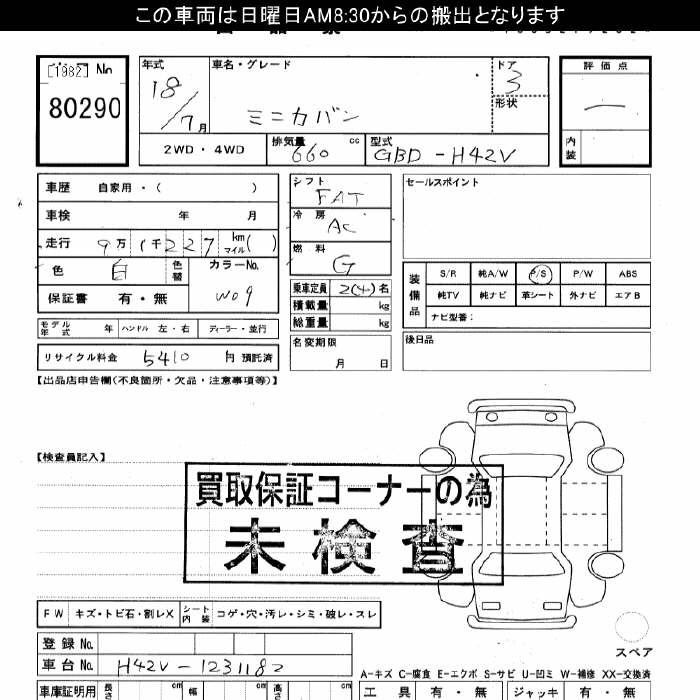 この車両は日曜日AM8:30からの搬出となります
[1982] No 80290
年式 18/7月
車名・グレード ミニカバン
ドア 3
形状
評価点 一
内装
2WD・4WD
排気量 660 cc
型式 GBD-H42V
車歴 自家用・( )
車検 年 月
走行 9万1千227 km マイル( )
色 白 色替
カラーNo. W09
保証書 有・無
モデル年式 年 ハンドル 左・右 ディーラー・並行
リサイクル料金 5410 円 預託済
シフト FAT
冷房 AC
燃料 G
乗車定員 2(4)名
積載量 kg
総重量 kg
名変期限 月 日
セールスポイント
装備品
S/R 純A/W P/S P/W ABS
純TV 純ナビ 革シート 外ナビ エアB
ナビ型番:
後日品
【出品店申告欄(不良箇所・欠品・注意事項等)】
【検査員記入】
買取保証コーナーの為
未検査
FW キズ・トビ石・割レX シート内装 コゲ・穴・汚レ・シミ・破レ・スレ
登録No.
車台No. H42V-1231182
スペア
A-キズ C-腐食 E-エクボ S-サビ U-凹ミ W-補修 XX-交換済
車庫証明用 長さ cm 幅 cm 高さ cm
工具 有・無 ジャッキ 有・無